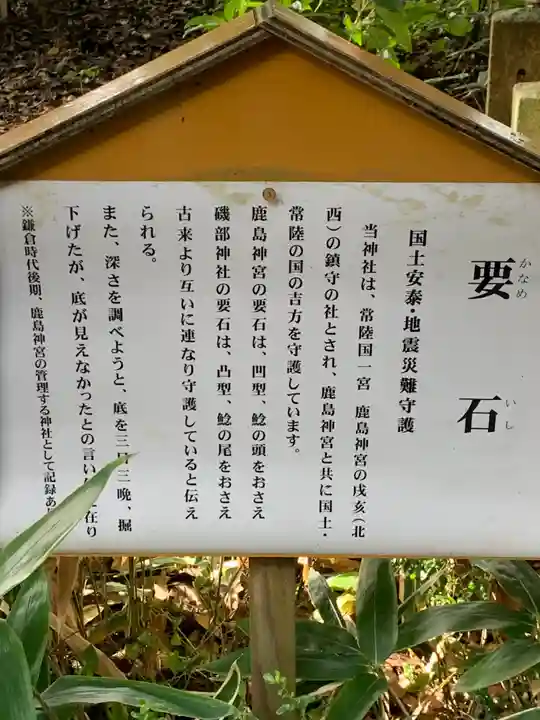 要石
かなめ いし
国土安泰・地震災難守護
当神社は、常陸国一宮 鹿島神宮の戌亥(北
西)の鎮守の社とされ、鹿島神宮と共に国土・
常陸の国の吉方を守護しています。
鹿島神宮の要石は、凹型、鯰の頭をおさえ
磯部神社の要石は、凸型、鯰の尾をおさえ
古来より互いに連なり守護していると伝え
られる。
また、深さを調べようと、底を三日三晩、掘
下げたが、底が見えなかったとの言い 在り
※鎌倉時代後期、鹿島神宮の管理する神社として記録あ